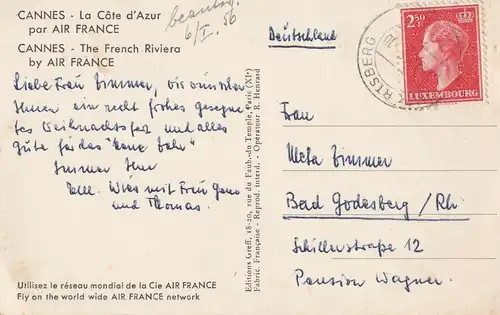 CANNES - La Côte d'Azur
par AIR FRANCE
CANNES - The French Riviera
by AIR FRANCE
6/I. 56
Liebe Frau Zimmer, wir wünschen
Ihnen ein recht frohes gesegne-
tes Weihnachtsfest und alles
Gute für das
Immer Ihr
mit Frau
und Thomas.
Utilisez le réseau mondial de la Cie AIR FRANCE
Fly on the world wide AIR FRANCE network
Editions Greff, 18-20, rue du Faub.-du Temple, Paris (XIe)
Fabric. Française - Reprod. interd. - Opérateur R. Mesnrard
Deutschland
RTSBERG
2F50
LUXEMBOURG
Frau
Meta Zimmer
Bad Godesberg / Rh.
Schillerstraße 12
Pension Wagner